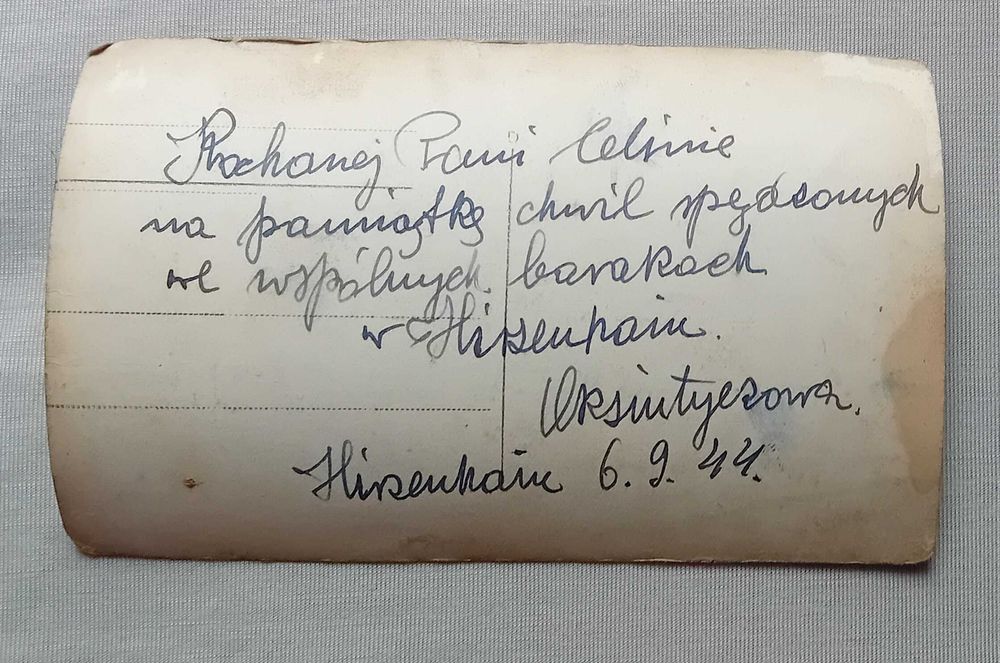 Kochanej Pani Celinie
na pamiątkę chwil spędzonych
we wspólnych barakach
w Hirzenhain.
Oksintyczowa.
Hirzenhain 6.9.44.